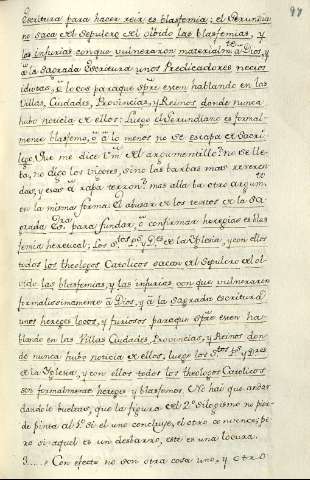 97
Escritura para hacer reir es blasfemia: el Gerundia
no saca del Sepulcro del olbido las blasfemias, y
las injurias con que vulneraron materialmte à Dios, y
à la Sagrada Escritura unos Predicadores necios
idiotas, y locos paraque spre esten hablando en las
Villas, Ciudades, Provincias, y Reinos donde nunca
hubo noticia de ellos: Luego el Gerundiano es formal-
mente blasfemo, ò à lo menos no se escapa de Sacri-
lego. Que me dice Vm. del argumentillo? no se lle-
ba, no digo los vigotes, sino las barbas mas reveren-
das, y esto à rapa terron? mas alla ba otro argumto
en la misma forma. El abusar de los textos de la Sa-
grada Escra para fundar, ò confirmar heregias es blas
femia heretical; los Stos Ps y Dres de la Yglesia, y con ellos
todos los theologos Catolicos sacan del sepulcro del ol-
vido las blasfemias, y las injurias con que vulneraron
formalissimamente à Dios, y à la sagrada escritura
unos hereges locos, y furiosos paraque spre esten ha-
blando en las Villas Ciudades, Provincias, y Reinos don-
de nunca hubo noticia de ellos, luego los Stos Ps y Dres
de la Yglesia, y con ellos todos los theologos Catolicos
son formalmente hereges y blasfemos. No hai que andar
dandole bueltas, que la figura del 2º silogismo no pier-
de pinta al 1º. si el uno concluye, el otro convence; pe
ro si aquel es un desbarro, este es una locura.
3..... Con efecto no son otra cosa uno, y otro